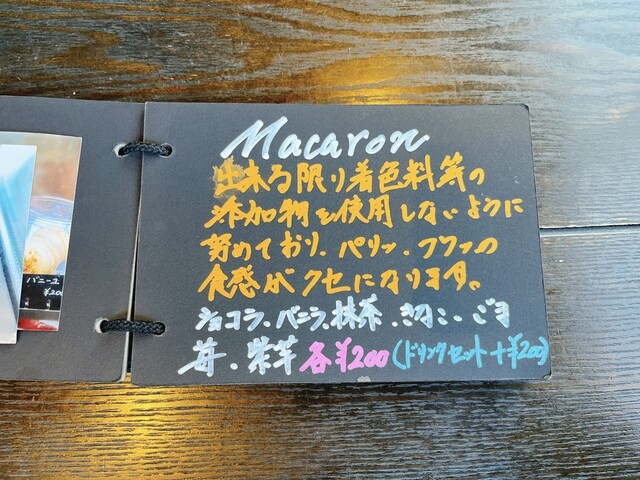 バニラ
¥200
Macaron
出来る限り着色料等の
添加物を使用しないように
努めており、パリッ、フワッの
食感がクセになります。
ショコラ、バニラ、抹茶、きなこ、ごま
苺、紫芋 各¥200(ドリンクセット+¥200)